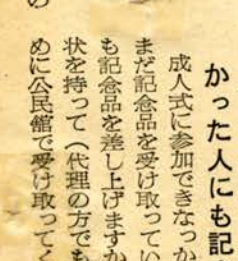 かった人にも記
成人式に参加できなかっ
まだ記念品を受け取ってい
も記念品を差し上げますか
状を持って(代理の方でも
めに公民館で受け取ってく
の